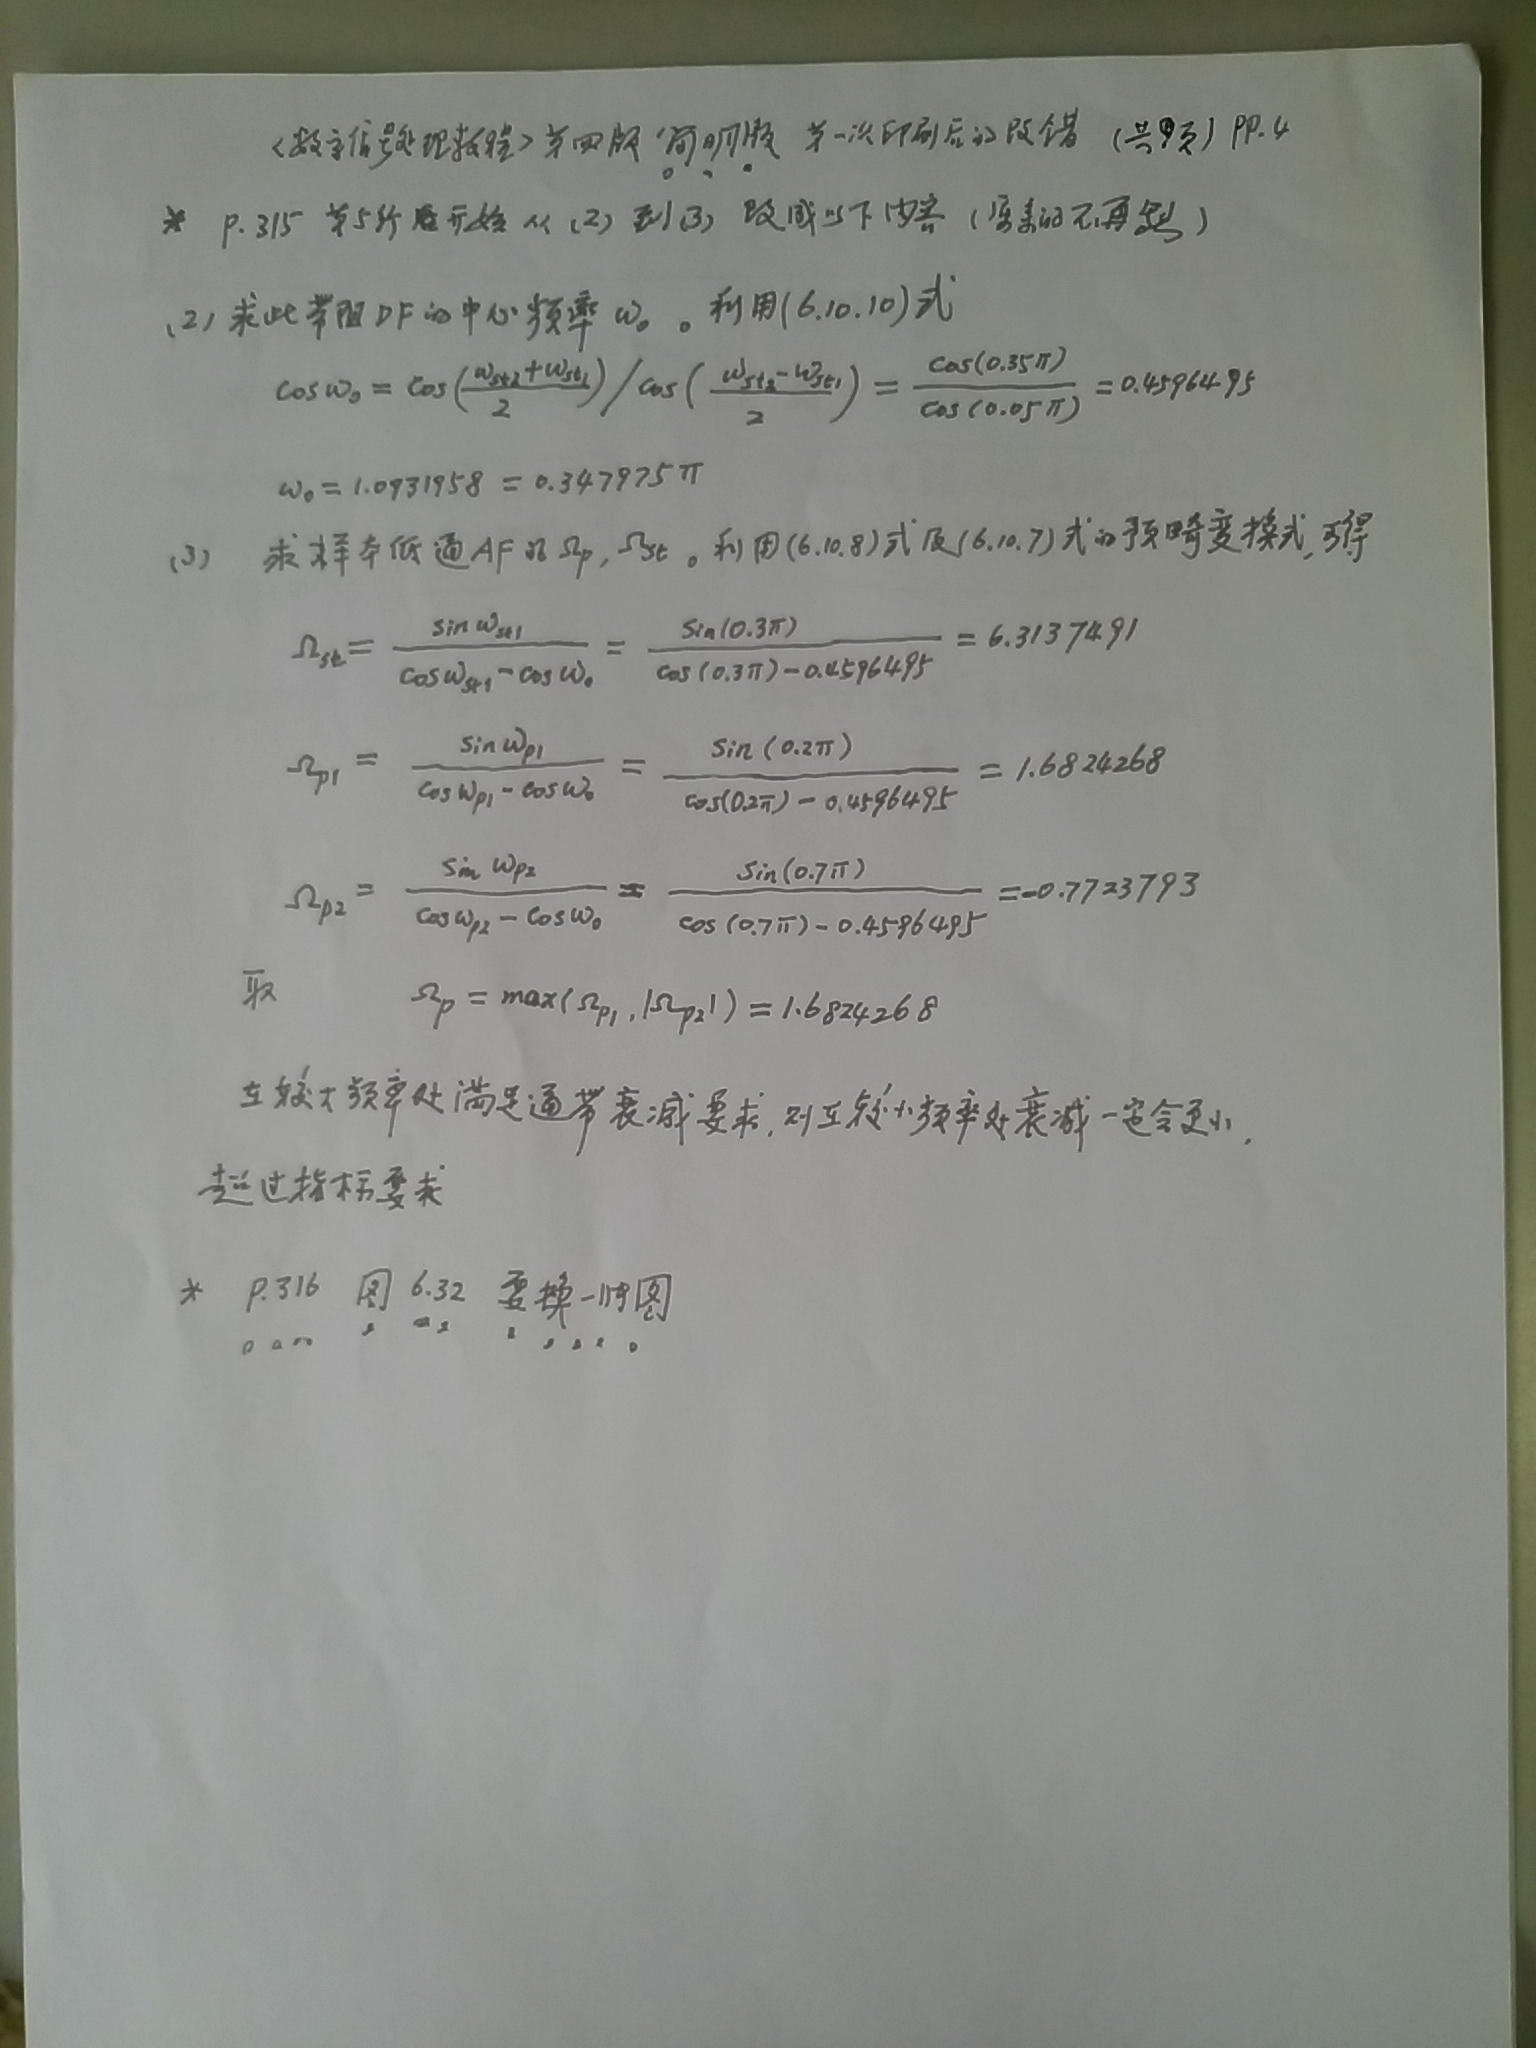 《数字信号处理教程》第四版 简明版 第一次印刷后的改错 (共9页) PP.4
* P.315 第5行后开始从(2)到(3) 改成以下内容 (原来的不再要)
(2) 求此带阻DF的中心频率 ω₀。利用(6.10.10)式
cos ω₀ = cos((ωst2+ωst1)/2) / cos((ωst2-ωst1)/2) = cos(0.35π)/cos(0.05π) = 0.4596495
ω₀ = 1.0931958 = 0.347975π
(3) 求样本低通AF的Ωp, Ωst。利用(6.10.8)式及(6.10.7)式的预畸变换式,可得
Ωst = sin ωst1/(cos ωst1 - cos ω₀) = sin(0.3π)/(cos(0.3π) - 0.4596495) = 6.3137491
Ωp1 = sin ωp1/(cos ωp1 - cos ω₀) = sin(0.2π)/(cos(0.2π) - 0.4596495) = 1.6824268
Ωp2 = sin ωp2/(cos ωp2 - cos ω₀) = sin(0.7π)/(cos(0.7π) - 0.4596495) = -0.7723793
取 Ωp = max(Ωp1, |Ωp2|) = 1.6824268
在较大频率处满足通带衰减要求,则在较小频率处衰减一定会更小,
超过指标要求
* P.316 图 6.32 要换一附图